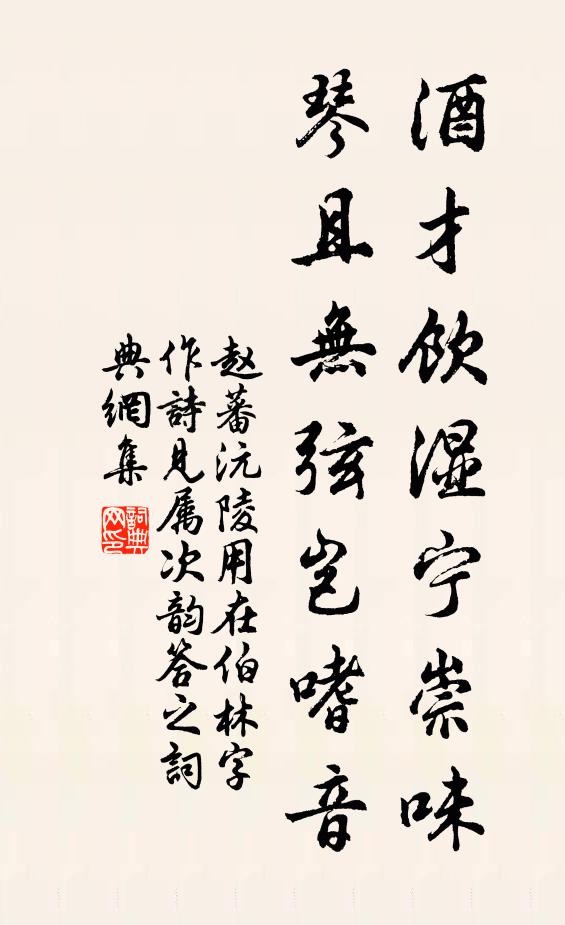 酒才飲湿宁崇味
琴且無弦岂嗜音
赵蕃沅陵用在伯林字
作詩見属次韵答之詞
典網集
詞典网印